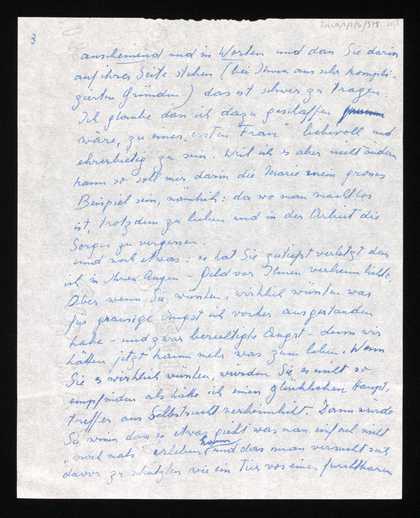 3
anscheinend und in Worten und dass Sie darin
auf ihrer Seite stehen (bei Ihnen aus sehr kompli-
zierten Gründen) das ist schwer zu tragen.
Ich glaube dass ich dazu geschaffen
wäre, zu einer "ersten Frau" liebevoll und
ehrerbietig zu sein. Weil ich es aber nicht anders
kann so soll mir darin die Marie mein grosses
Beispiel sein, nämlich: da wo man machtlos
ist, trotzdem zu lieben und in der Arbeit die
Sorgen zu vergessen.
Und noch etwas: es hat Sie zutiefst verletzt dass
ich in Ihren Augen - Geld vor Ihnen verheimlicht.
Aber wenn Sie wüssten, wirklich wüssten was
für grausige Angst ich vorher ausgestanden
habe - und zwar berechtigte Angst - denn wir
hätten jetzt kaum mehr was zum leben. Wenn
Sie es wirklich wüssten, würden Sie es nicht so
empfinden als hätte ich einen glücklichen Haupt-
treffer aus Selbstsucht verheimlicht. Dann würde
Sie wissen dass es etwas giebt was man einfach nicht
noch mals erleben kann und dass man versucht sich
davor zu schützen wie ein Tier vor einer furchtbaren